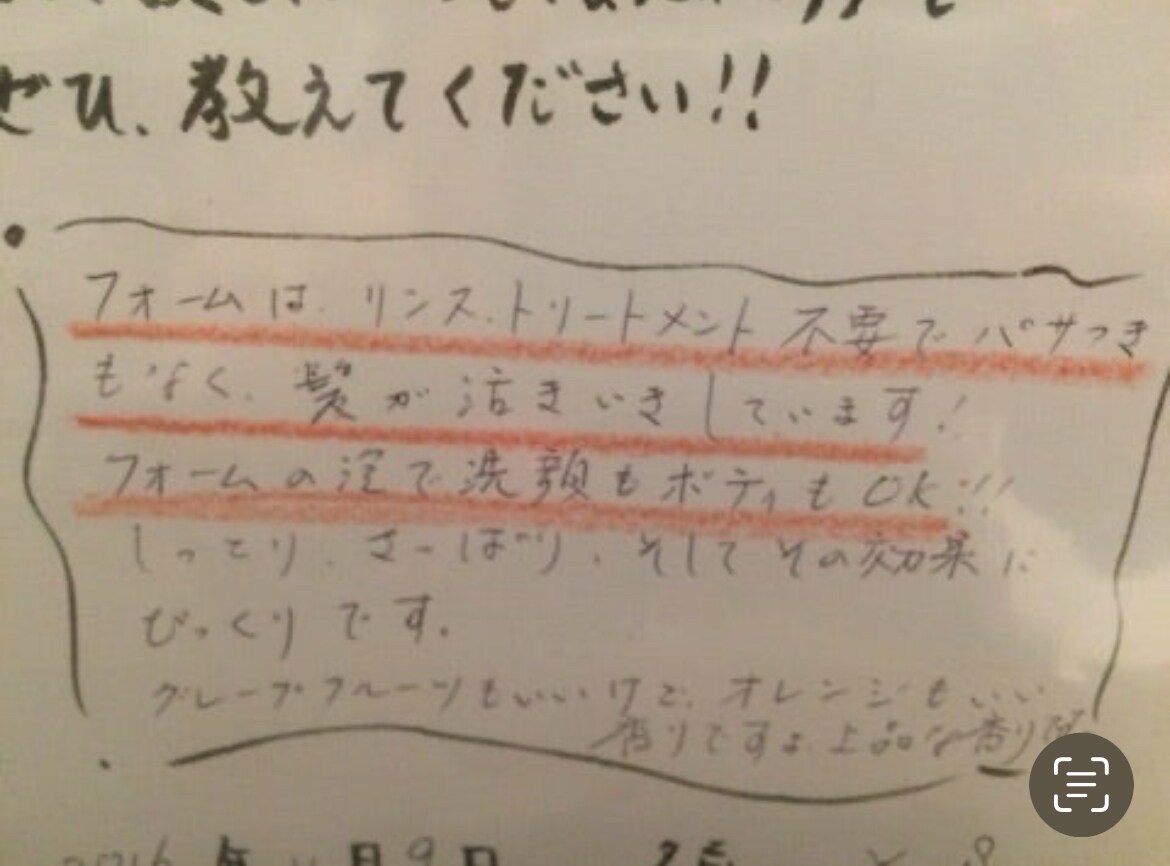 ぜひ、教えてください!!
フォームは、リンス、トリートメント 不要で パサつき
もなく、髪が活きいきしています!
フォームの泡で洗顔もボディもOK!!
しっとり、さっぱり、そしてその効果に
びっくりです。
グレープフルーツもいいけど、オレンジもいい
香りですよ 上品な香り
年 月9日